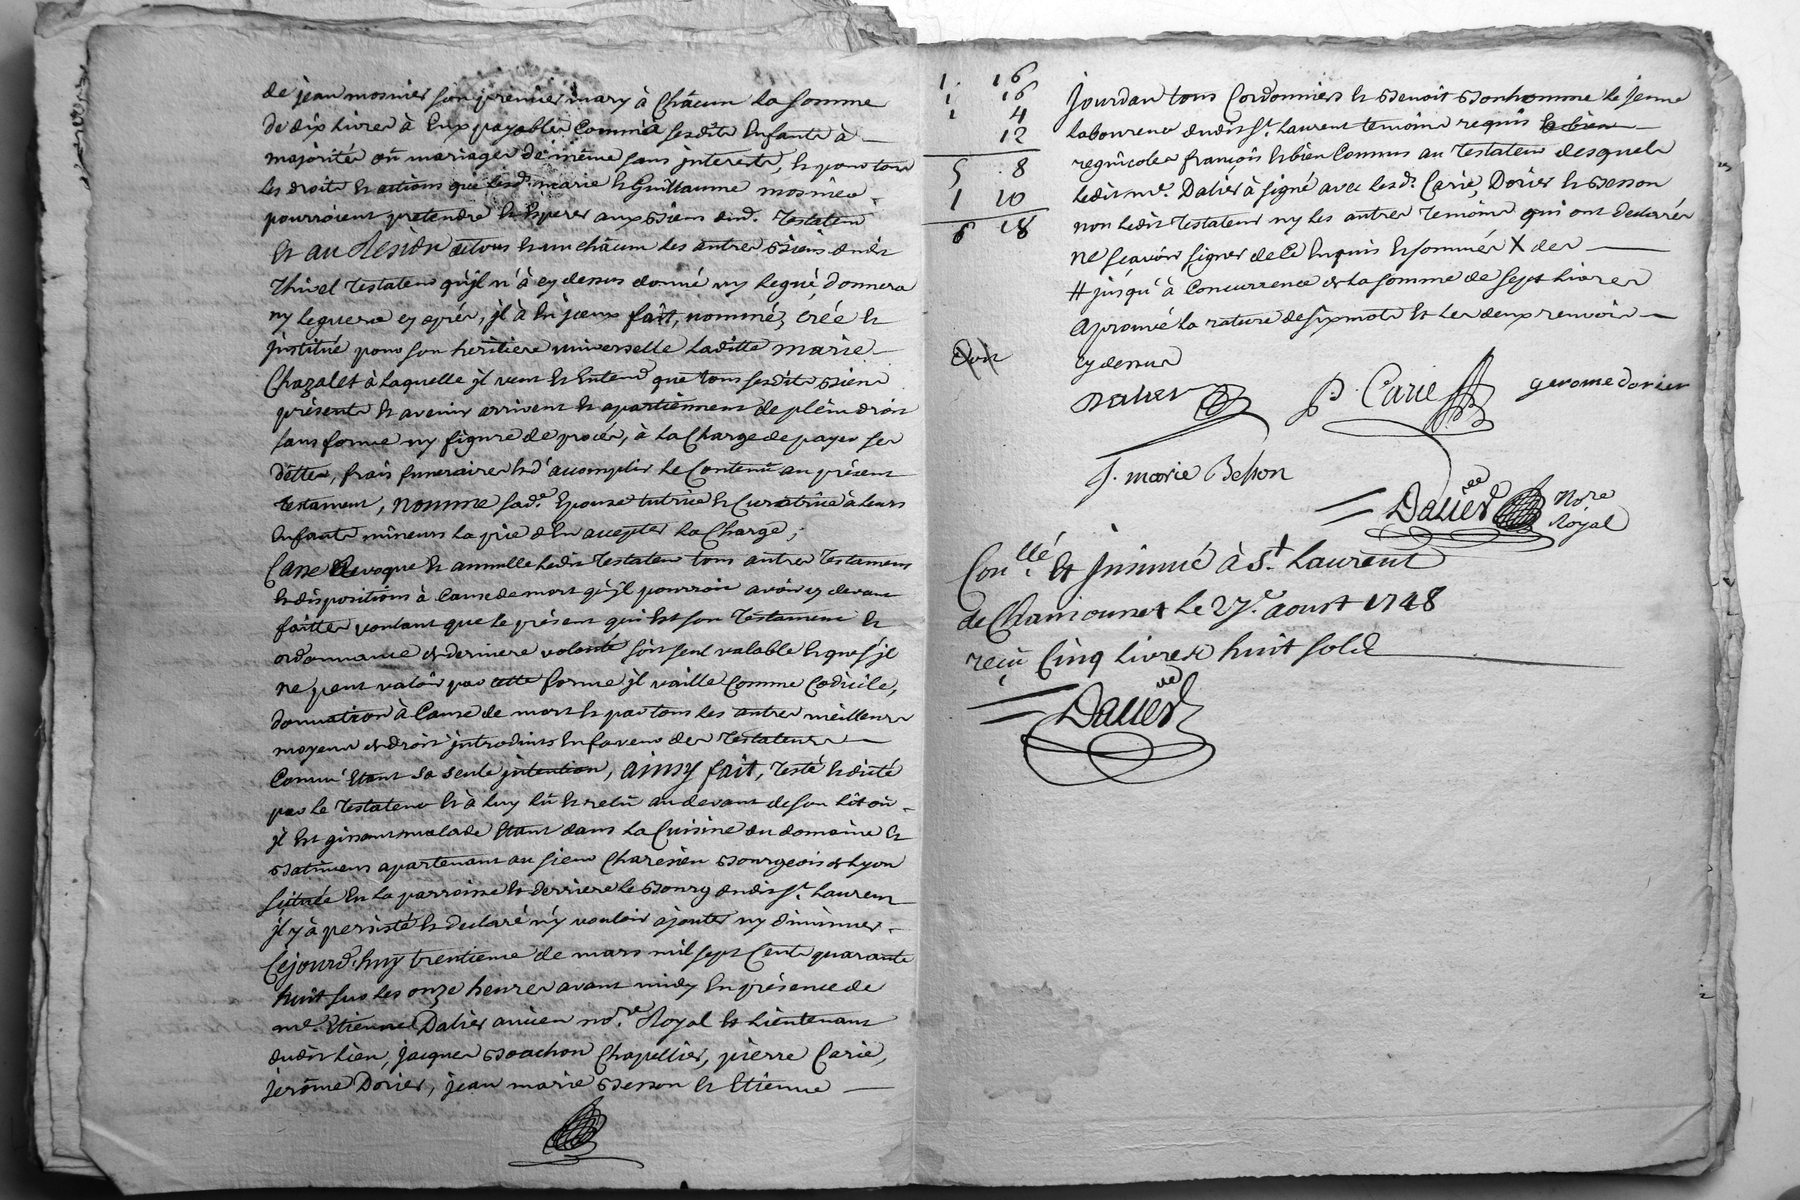 de jean mosnier son premier mary à Châcun la somme
de dix livres à Eux payables Comme à sesdits Enfants à
majorité où mariage de même sans interests, et pour tous
les droits et actions que lesd. marie et Guillaume mosnier
pourroient pretendre et Esperer aux Biens dud. Testateur
Et au Residu à tous et un châcun les autres Biens dudit
Thivel testateur qu'il n'à cy dessus donné ny legué, donnera
ny leguera cy après, jl à Enjceux fait, nommé, créé et
jnstitué pour son heritiere universelle laditte marie
Chazalet à laquelle jl veut et Entend que tous sesdits Biens
présents et avenir arrivent et apartiennent de plein droit
sans forme ny figure de procès, à la Charge de payer ses
dettes, frais funeraires et d'acomplir le Contenû au présent
testament, nomme sad.e Epouse tutrice et Curatrice à leurs
Enfants mineurs la prie d'En accepter la Charge;
Casse Revoque et annulle ledit Testateur tous autres Testaments
et dispositions à Cause de mort qu'jl pourroit avoir cy devant
faittes voulant que le présent qui Est son Testament et
ordonnance de derniere volonté soit seul valable et que s'jl
ne peut valoir par cette forme jl vaille Comme Codicile,
donnation à Cause de mort et par tous les autres meilleurs
moyens de droit jntroduits En faveur des Testateurs
Comme Etant sa seule jntention, ainsy fait, testé et dicté
par le Testateur et à luy lû et relû au devant de son lit où
jl Est gissant malade Etant dans la Cuisine du domaine et
Batimens apartenant au sieur Charesieu Bourgeois de Lyon
situés En la parroisse et derriere le Bourg dudit St. Laurent
jl y à persisté et declaré n'y vouloir ajouter ny diminuer.
Cejourd'huy trentieme de mars mil sept Cents quarante
huit sur les onze heures avant midy En présence de
me. Etienne Dalier ancien nore. Royal et Lieutenant
dudit lieu, jacques Bouchon Chapellier, pierre Carie,
jerôme Dorier, jean marie Besson et Etienne
1. 16
1 16
1 4
12
5 8
1 10
6 18
jourdan tous Cordonniers et Benoit Bonhomme le jeune
laboureur dudit St. Laurent temoins requis et bien
regnicoles françois et bien Connus au Testateur desquels
ledit me. Dalier à signé avec lesd. Carie, Dorier et Besson
non ledit Testateur ny les autres Temoins qui ont declarés
ne sçavoir signer de Ce Enquis et sommés X des
# jusqu'à Concurrence de la somme de sept Livres
aprouvé la rature de six mots et les deux renvois
cy dessus
Dalier P. Carie gerome dorier
J. marie Besson
Dalier Nore Royal
Conllé. et jnsinué à St. Laurent
de Chamousset le 27e. aoust 1748
reçu Cinq Livres huit sols
Dalier